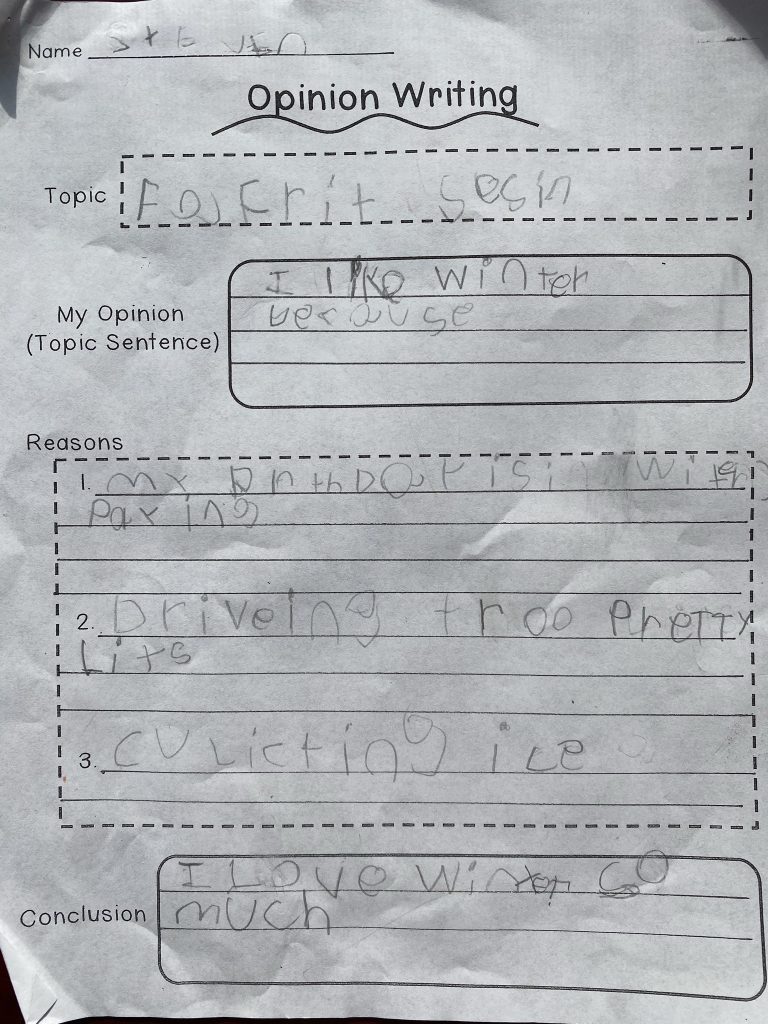 Name Steven
Opinion Writing
Topic Fayfrit sesin
My Opinion
(Topic Sentence)
I like winter
because
Reasons
1. my brthday is in winter
Paying
2. Driveing troo Pretty
Lits
3. culicting ice
Conclusion
I Love winter so
much